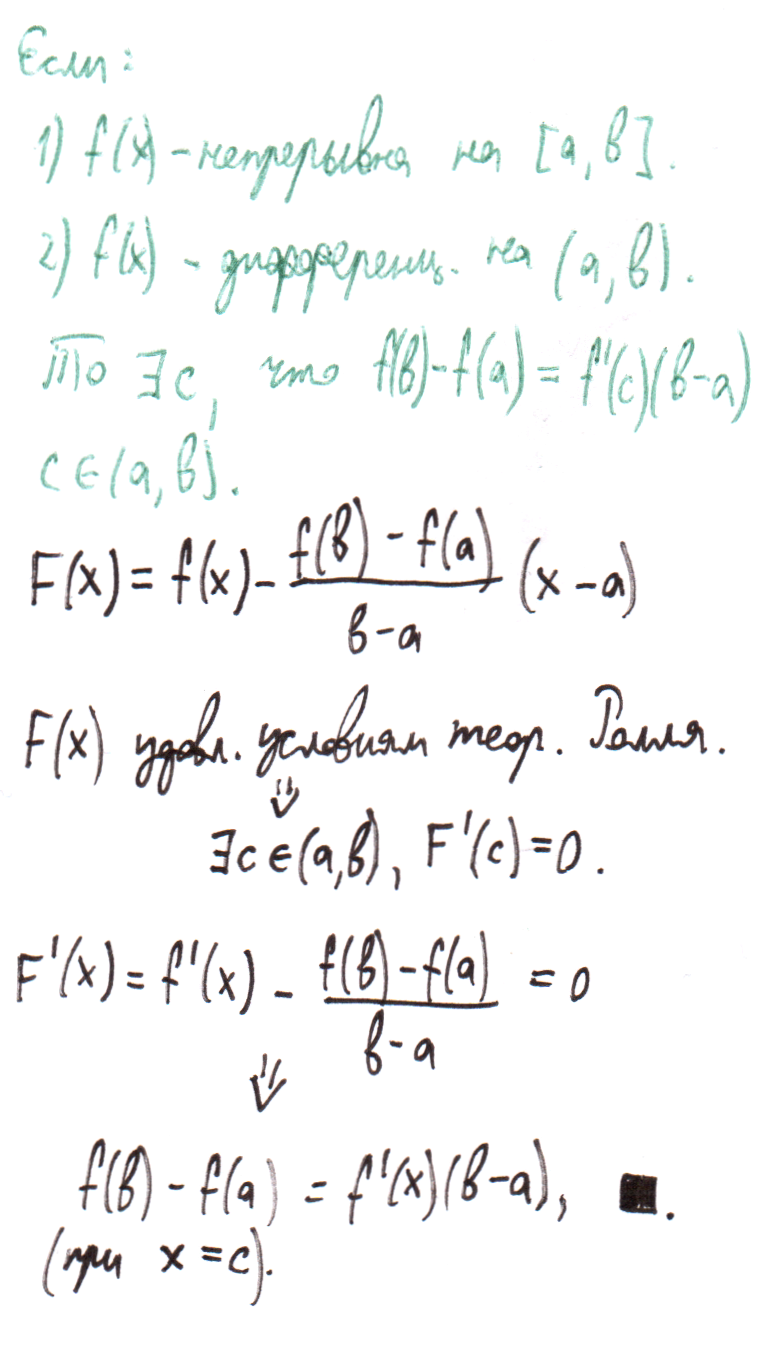 Если:
1) f(x) - непрерывна на [a, в].
2) f(x) - дифференц. на (a, в).
То ∃c, что f(в)-f(a) = f'(c)(в-a)
c∈(a, в).
F(x) = f(x) - \frac{f(в) - f(a)}{в-a} (x-a)
F(x) удовл. условиям теор. Ролля.
⇓
∃c∈(a,в), F'(c)=0.
F'(x) = f'(x) - \frac{f(в)-f(a)}{в-a} = 0
⇓
f(в) - f(a) = f'(x)(в-a), ■.
(при x=c).